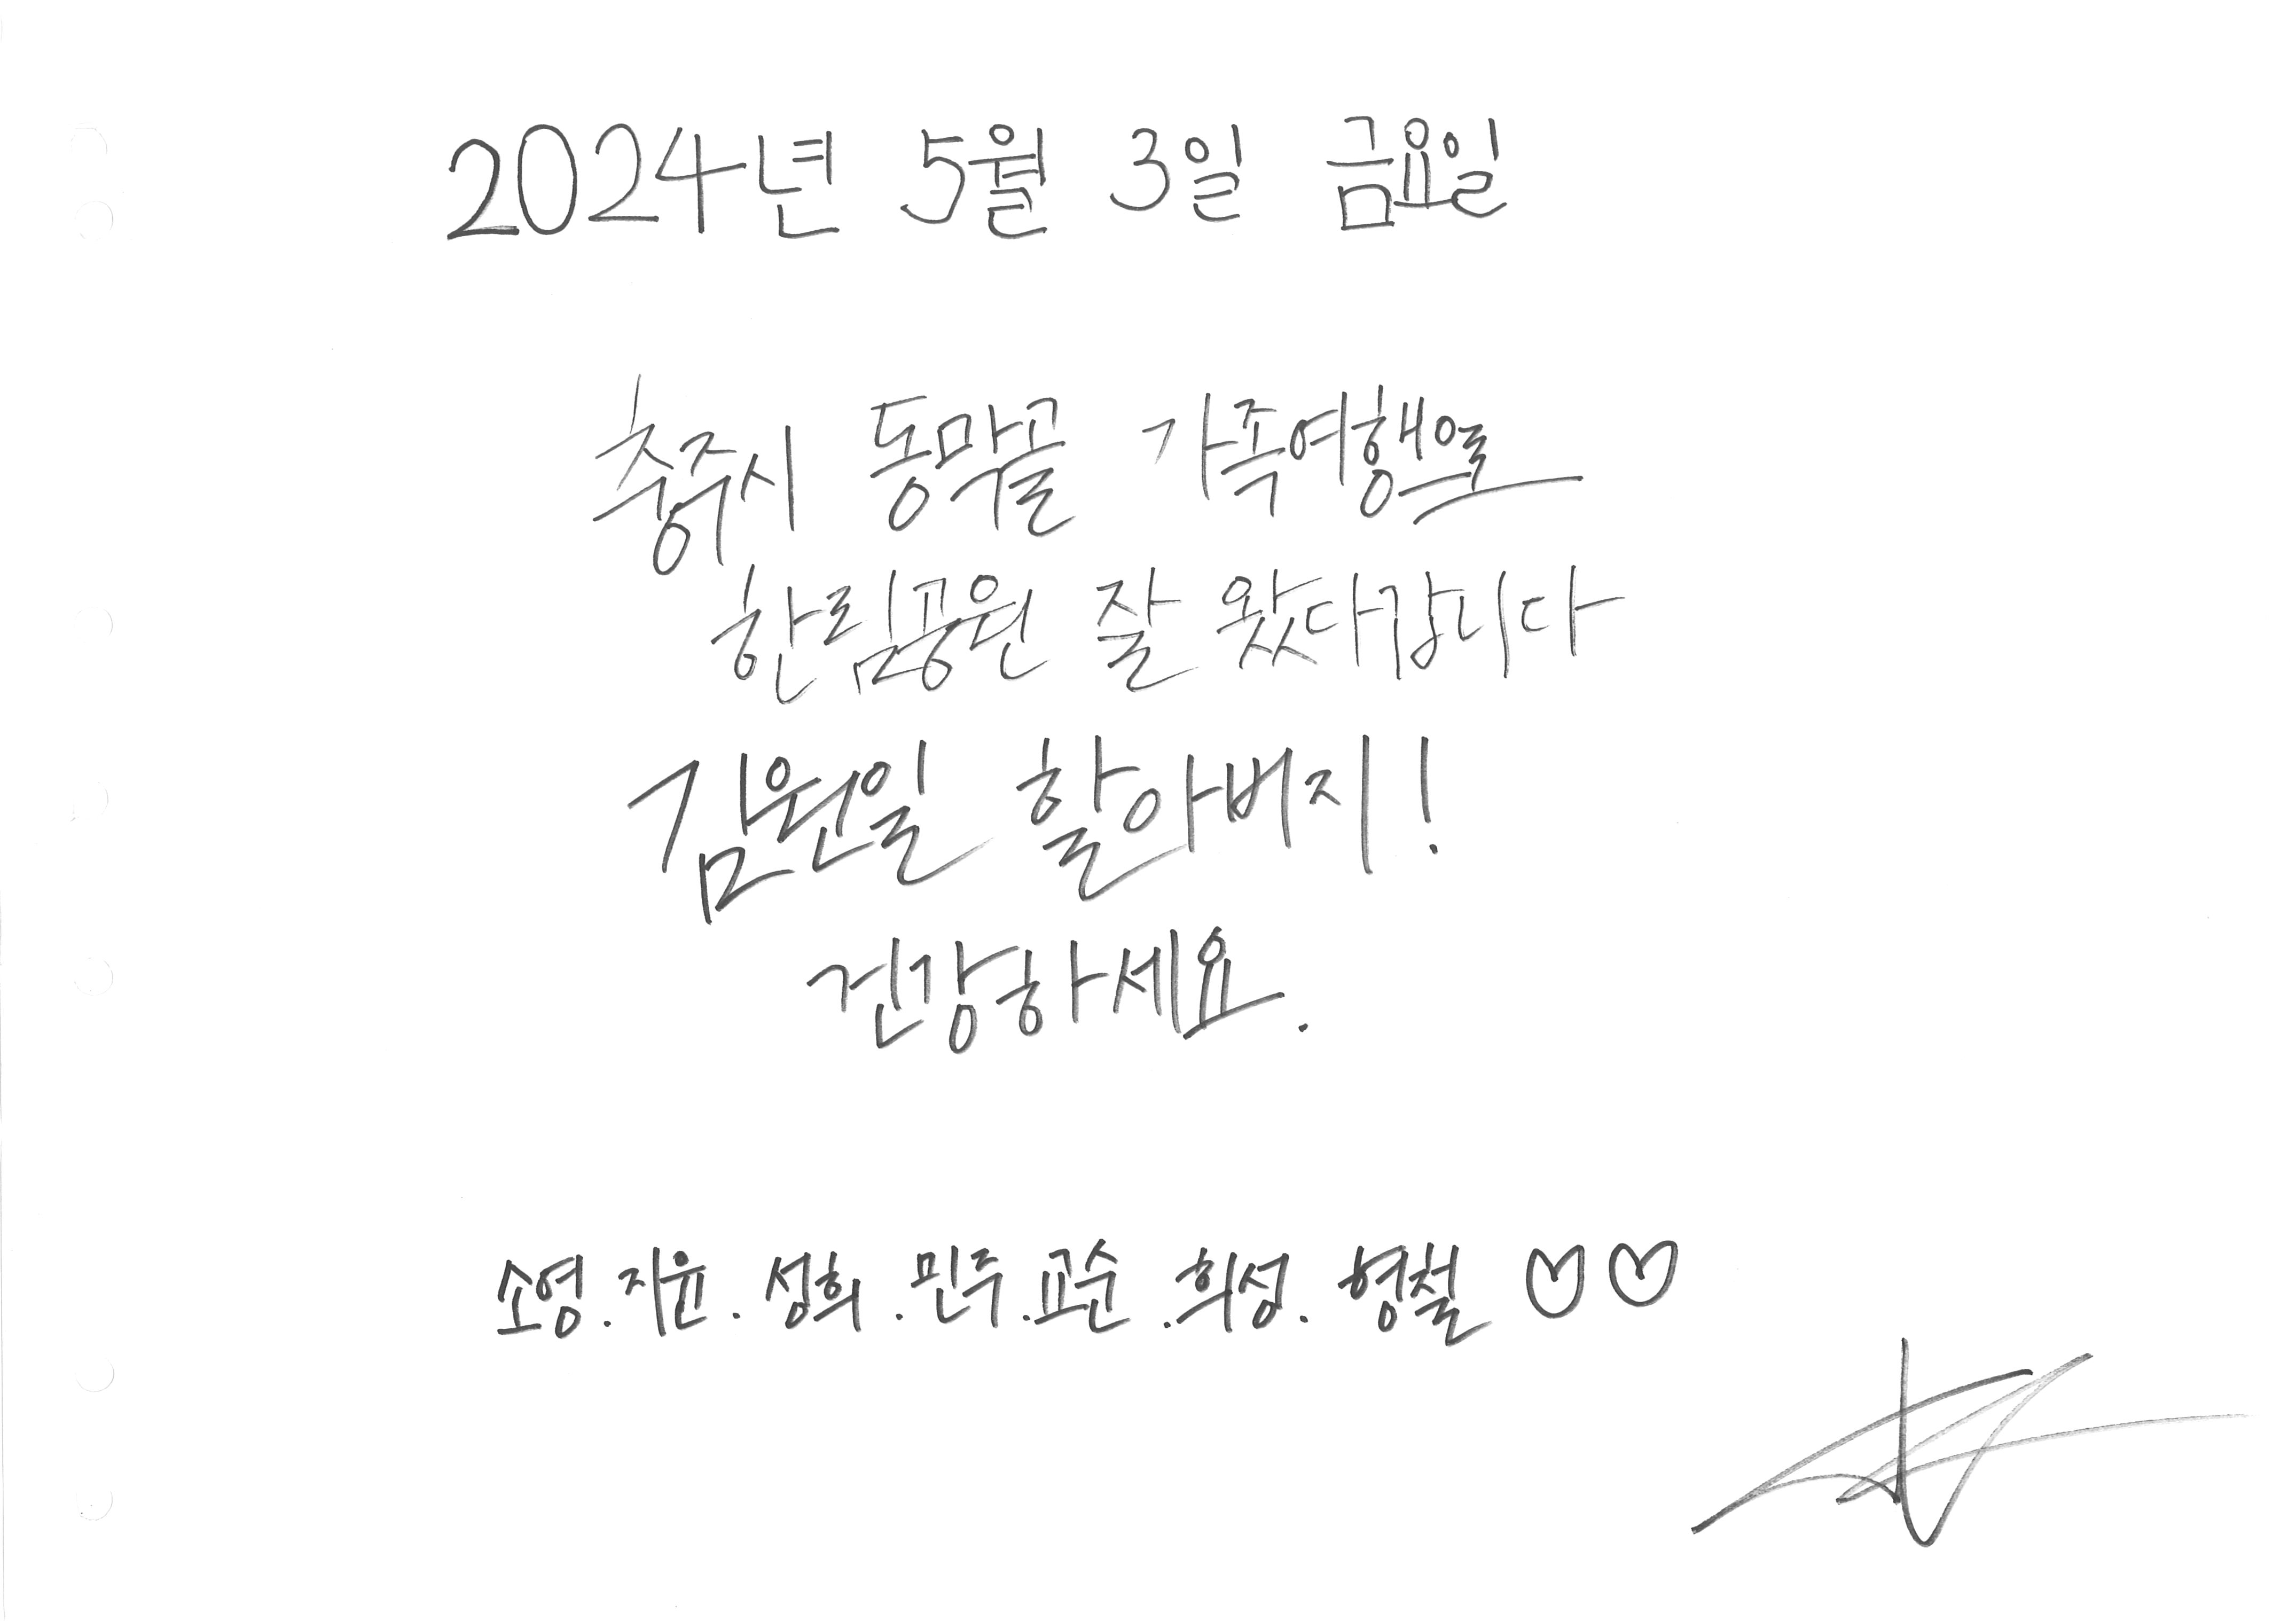 2024년 5월 3일 금요일
충주시 동막골 가족여행으로
한림공원 잘 왔다갑니다
김원일 할아버지!
건강하세요.
소영.지윤.성희.민주.교순.희성.형철 ♡♡